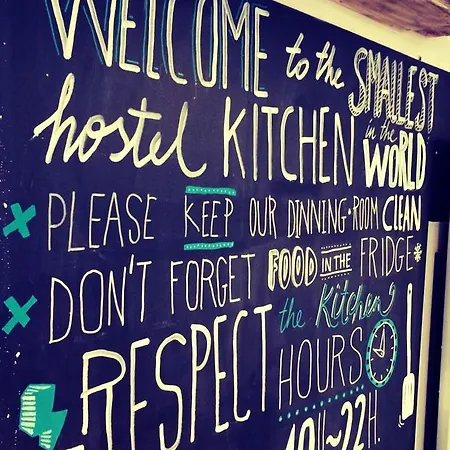 WELCOME to the SMALLEST
hostel KITCHEN in the WORLD
PLEASE KEEP OUR DINNING-ROOM CLEAN
DON'T FORGET FOOD IN THE FRIDGE*
RESPECT the Kitchen
HOURS
10H~22H.